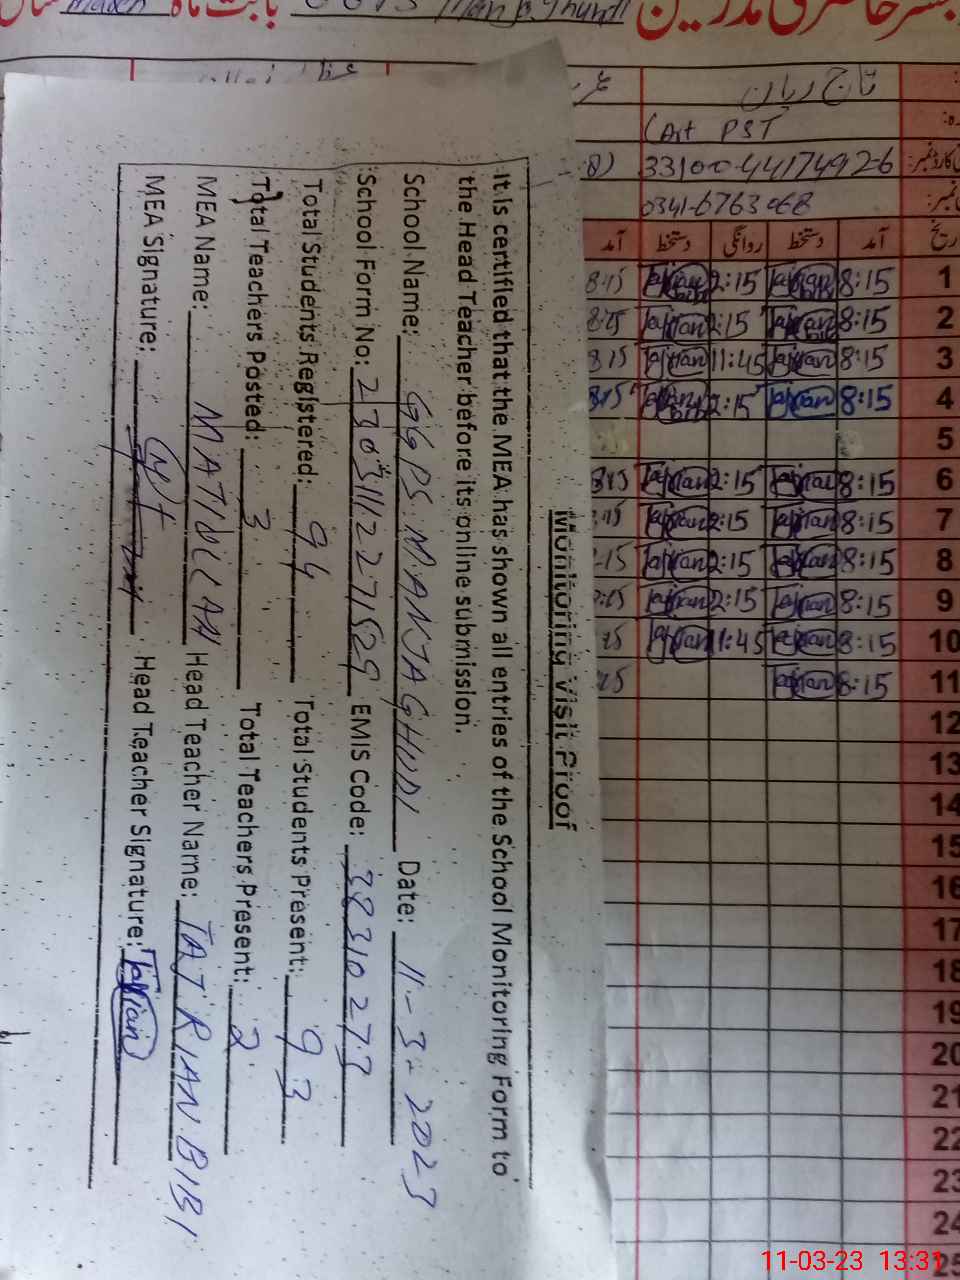 رحاضری مدرسین
بابت ماہ
Cast PST
33100-4417492-6
0341-6763068
تاریخ آمد دستخط روانگی دستخط آمد
1 8:15 Tajrian 2:15 Tajrian 8:15
2 8:15 Tajrian 2:15 Tajrian 8:15
3 8:15 Tajrian 11:45 Tajrian 8:15
4 8:15 Tajrian 2:15 Tajrian 8:15
5
6 8:15 Tajrian 2:15 Tajrian 8:15
7 8:15 Tajrian 2:15 Tajrian :15
8 8:15 Tajrian 2:15 Tajrian :15
9 8:15 Tajrian 2:15 Tajrian :15
10 8:15 Tajrian 11:45 Tajrian :15
11 8:15 Tajrian :15
12
13
14
15
16
17
18
19
20
21
22
23
24
25
Monitoring Visit Proof
It is certified that the MEA has shown all entries of the School Monitoring Form to
the Head Teacher before its online submission.
School Name: GGPS MANJAGHUDI Date: 11-3-2023
School Form No: EMIS Code: 38310273
Total Students Registered: 94 Total Students Present: 93
Total Teachers Posted: 3 Total Teachers Present: 2
MEA Name: MATIULLAH Head Teacher Name: TAJ RIAN BIBI
MEA Signature: Head Teacher Signature: Tajrian
11-03-23 13:31